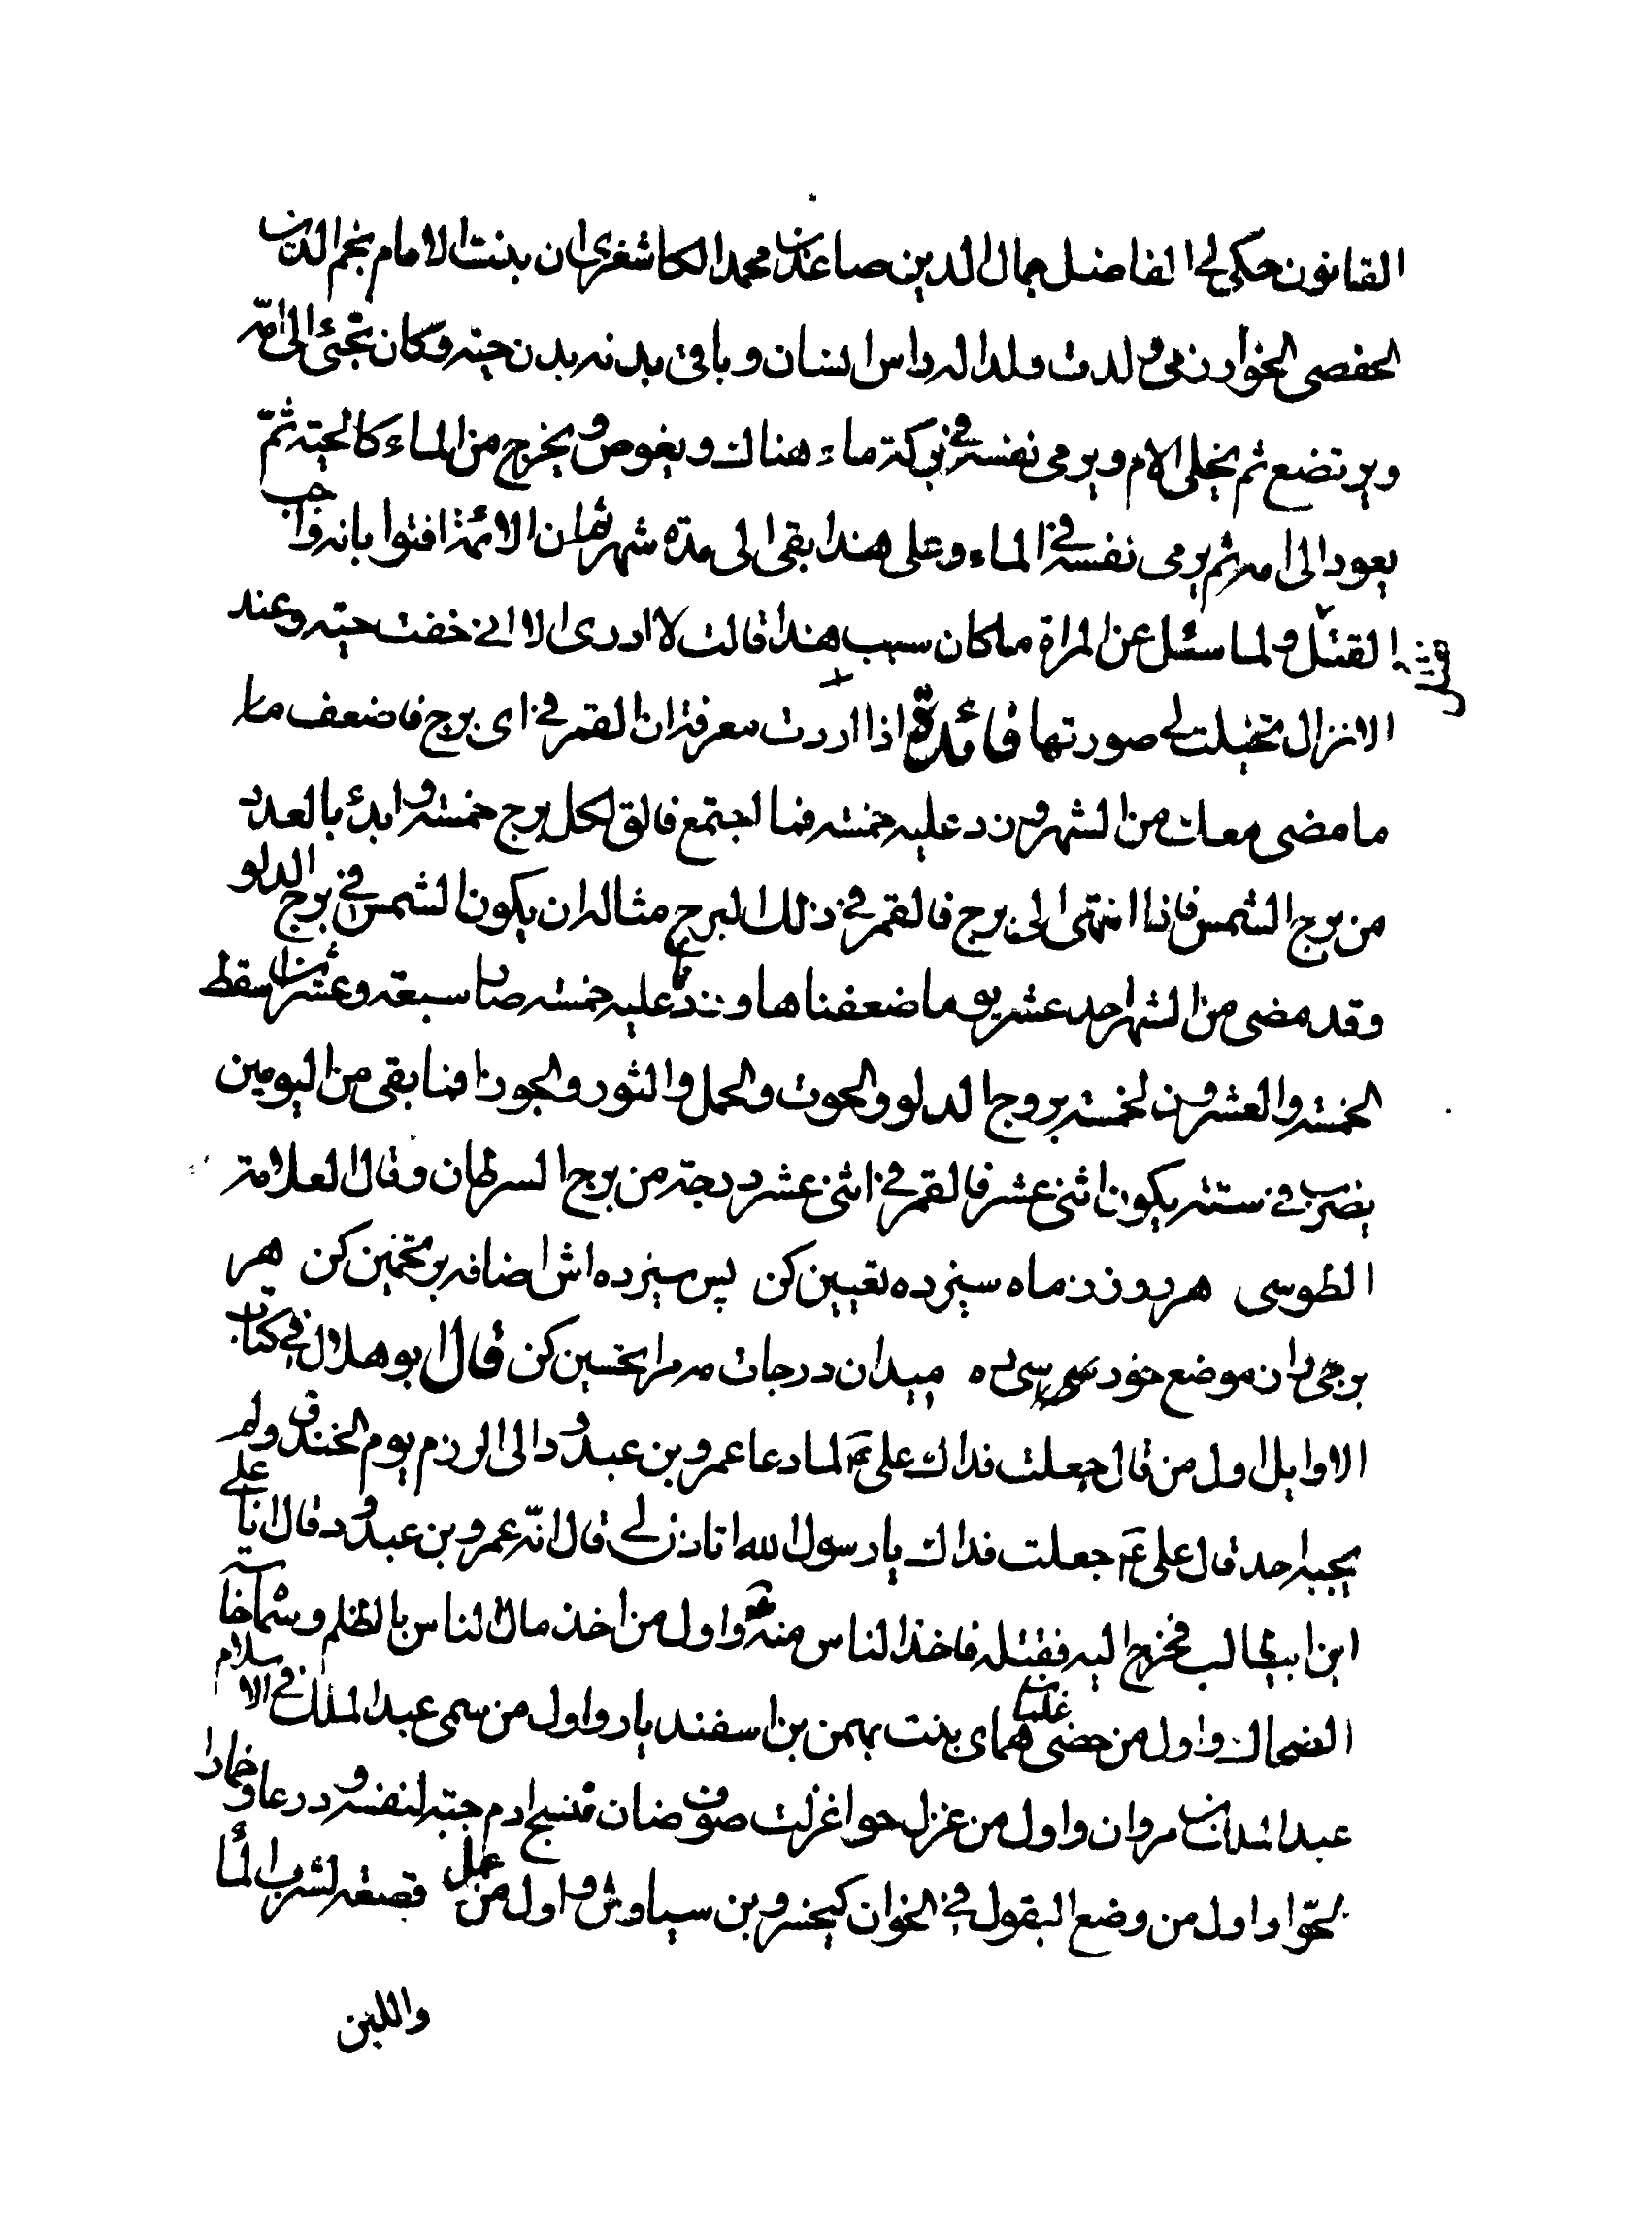 القانون حكى لى الفاضل جمال الدين صاعد بن محمد الكاشغرى ان بنت الامام نجم الدين
الحفصى الخوارزمى ولدت ولدا له راس انسان وباقى بدنه بدن حيته وكان تجئ الى امه
ويرتضع ثم يخلى الام ويرمى نفسه فى بركة ماء هناك ويغوص ويخرج من الماء كالحيته ثم
يعود الى امه ثم يرمى نفسه فى الماء وعلى هذا بقى الى مدة شهر ثم ان الائمة افتوا بانه واجب
القتل ولما سئل عن المراة ما كان سبب هذا قالت لا ادرى الا انى خفت حيته وعند
الانزال تخيلت لى صورتها فائدة اذا اردت معرفة ان القمر فى اى برج فاضعف ما
ما مضى معك من الشهر وزد عليه خمسه فما اجتمع فالق لكل برج خمسه وابدئ بالعدد
من برج الشمس فاذا انتهى الى برج فالقمر فى ذلك البرج مثاله ان يكون الشمس فى برج الدلو
وقد مضى من الشهر احد عشر يوما ضعفناها وزدنا عليه خمسه صار سبعة وعشرين اسقط
الخمسه والعشرون لخمسه بروج الدلو والحوت والحمل والثور والجوزا فما بقى من اليومين
يضرب فى ستته يكون اثنى عشر فالقمر فى اثنى عشر درجة من برج السرطان وقال العلامة
الطوسى هر روز ز ماه سيزده تعيين كن پس سيزده اش اضافه بر تخمين كن هر
برجى را ن موضع خور سى ده ميدان درجات مه را تحسين كن قال ابو هلال فى كتاب
الاوايل اول من قال جعلت فداك على ع لما دعا عمرو بن عبدود الى الرزم يوم الخندق ولم
يجبه احد قال على ع جعلت فداك يا رسول الله اتاذن لى قال انه عمرو بن عبدود قال انا على
ابن ابيطالب فخرج اليه فقتله فاخذ الناس منه واول من اخذ مال الناس بالظلم وسماه خاسه
الضحاك واول من حضى غلبه هماى بنت بهمن بن اسفنديار واول من سمى عبد الملك فى الاسلام
عبد الملك بن مروان واول من غزل حوا غزلت صوف ضان فنسج ادم جبته لنفسه ودرعا وخمارا
لحوا واول من وضع البقول فى الخوان كيخسرو بن سياوش واول من عمل قصعه لشرب الماء
واللبن